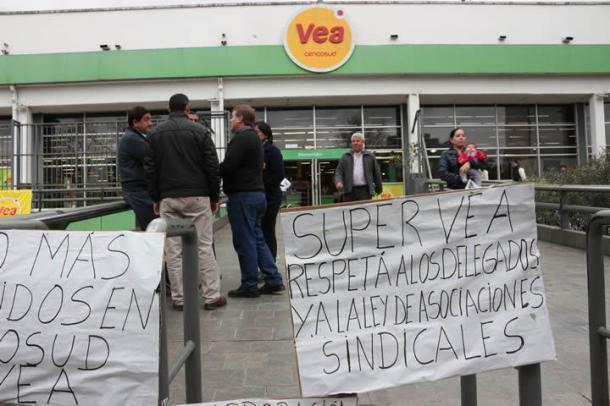 Vea
cencosud
Vea
O MÁS
IDOS EN
OSUD
VEA
SUPER VEA
RESPETÁ A LOS DELEGADOS
Y A LA LEY DE ASOCIACIONES
SINDICALES